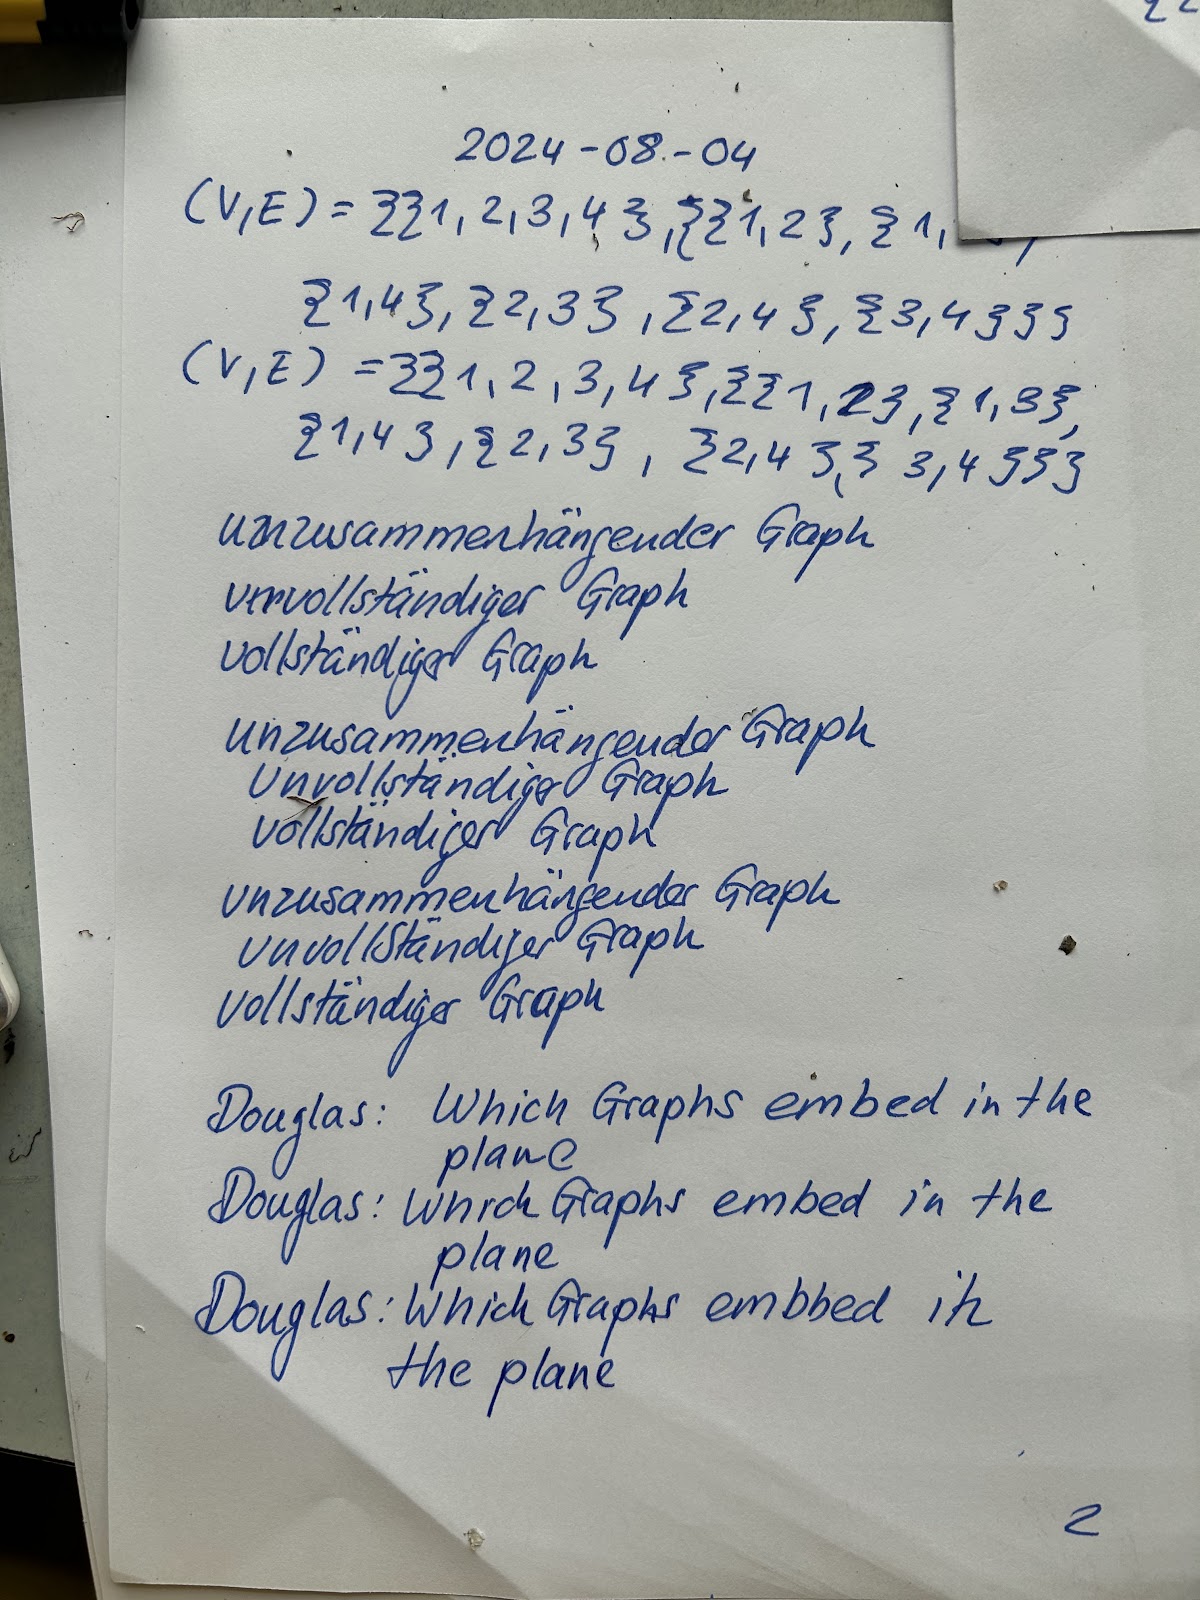 2024-08-04
(V,E) = {{1,2,3,4},{{1,2},{1,
{1,4},{2,3},{2,4},{3,4}}}
(V,E) = {{1,2,3,4},{{1,2},{1,3},
{1,4},{2,3},{2,4},{3,4}}}
unzusammenhängender Graph
unvollständiger Graph
vollständiger Graph
unzusammenhängender Graph
Unvollständiger Graph
vollständiger Graph
unzusammenhängender Graph
unvollständiger Graph
vollständiger Graph
Douglas: Which Graphs embed in the
plane
Douglas: Which Graphs embed in the
plane
Douglas: Which Graphs embbed in
the plane
2